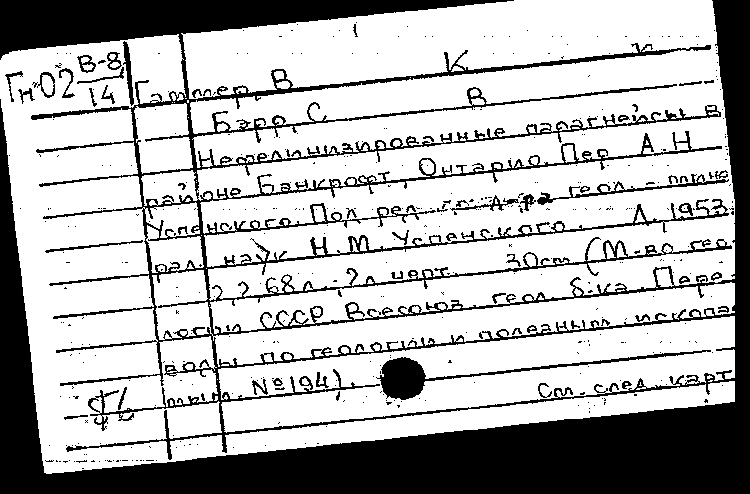 Гн02 В-8/14 Гаммер, В К
Бэрр, С В
Нефелинизированные парагнейсы в
районе Банкрофт, Онтарио. Пер А.Н
Успенского. Под ред геол.-мине
рал. наук Н.М. Успенского. Л, 1953.
?,?, 68л.; ?л черт. 30см (М-во гео
логии СССР Всесоюз. геол. б-ка. Пере-
воды по геологии и полезным ископае
мым. №194).
См. след. карт